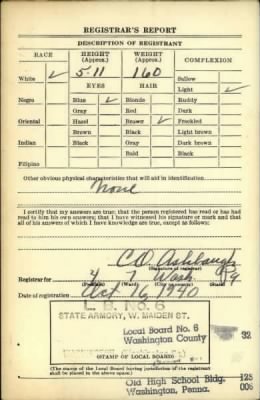 REGISTRAR'S REPORT
DESCRIPTION OF REGISTRANT
RACE HEIGHT (Approx.) WEIGHT (Approx.) COMPLEXION
White ✓ 5-11 160 Sallow
EYES HAIR Light ✓
Negro Blue ✓ Blonde Ruddy
Gray Red Dark
Oriental Hazel Brown ✓ Freckled
Brown Black Light brown
Indian Black Gray Dark brown
Bald Black
Filipino
Other obvious physical characteristics that will aid in identification
None
I certify that my answers are true; that the person registered has read or has had
read to him his own answers; that I have witnessed his signature or mark and that
all of his answers of which I have knowledge are true, except as follows:
C D. Ashbaugh
(Signature of registrar)
Registrar for 4 7 Wash Pa
(Precinct) (Ward) (City or county) (State)
Date of registration Oct 16 1940
L. B. No. 6
STATE ARMORY, W. MAIDEN ST.
Local Board No. 6 32
Washington County
(STAMP OF LOCAL BOARD)
(The stamp of the Local Board having jurisdiction of the registrant
shall be placed in the above space.)
Old High School Bldg. 125
Washington, Penna. 006